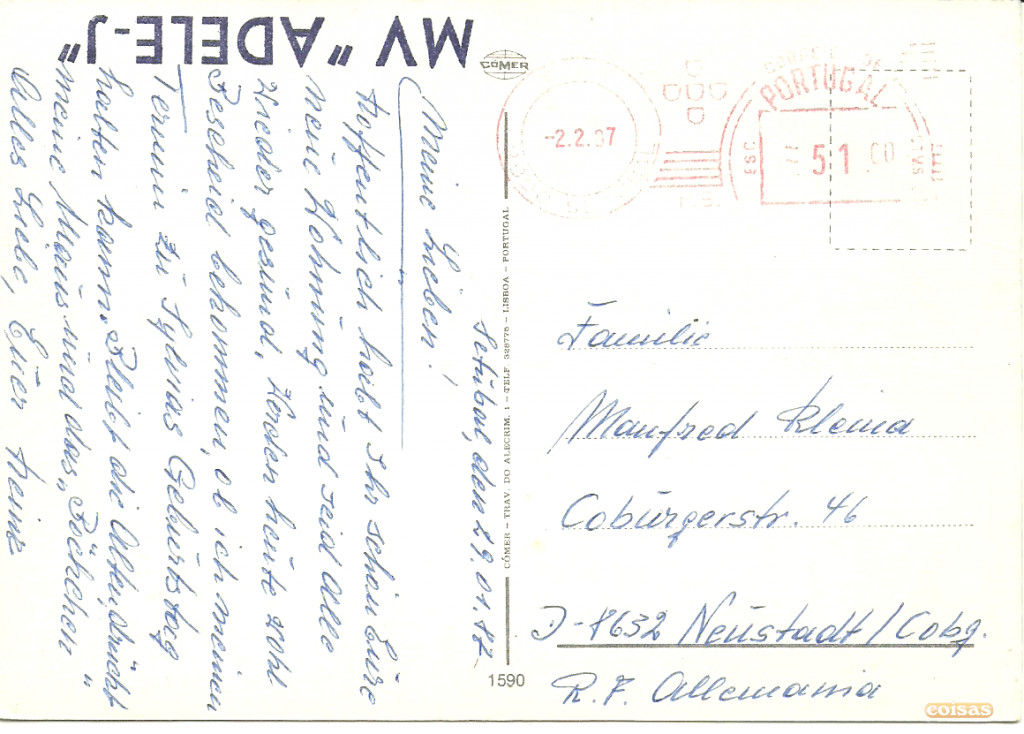 MV "ADELE-J"
CÓMER
Setúbal, den 29.01.87
Meine Lieben!
Hoffentlich habt Ihr schon Eure
neue Wohnung und seid alle
wieder gesund. Werden heute wohl
Bescheid bekommen, ob ich meinen
Termin zu Sylvias Geburtstag
halten kann. Bleibt die Alten, drückt
meine Maus und das "Böckchen"
Alles Liebe, Euer Heinz
CÓMER – TRAV. DO ALECRIM, 1 – TELF. 328775 – LISBOA – PORTUGAL
1590
-2.2.87
PORTUGAL
ESC
51 00
Familie
Manfred Kleina
Coburgerstr. 46
D-8632 Neustadt/Cobg.
R.F. Allemania
coisas